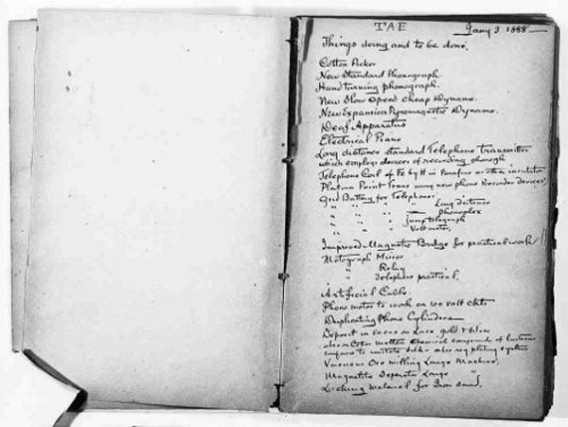 TAE Jany 3 1888
Things doing and to be done.
Cotton Picker
New Standard Phonograph
Hand turning phonograph.
New Slow Speed Cheap Dynamo.
New Expansion Pyromagnetic Dynamo.
Deaf Apparatus
Electrical Piano
Long distance standard Telephone Transmitter
which employs devices of recording phonogh
Telephone Coil of Fe by in Parafine or other insulator
Platina Point Trans using new phono Recorder devices
Grid Battery for Telephones.
" " " Long distance
" " " Phonoplex
" " " Jump telegraph
" " " Voltmeter.
Improved Magnetic Bridge for practical work
Motograph Mirror
" Relay
" Telephone practical.
Artificial Cable
Phono motor to work on 100 volt ckts
Duplicating Phono Cylinders
Deposit in vacuo on Lace gold & silver
also on Cotton molten chemical compounds of lustrous
surfaces to imitate silk - also reg plating system
Vacuous Ore milling Large Machine.
Magnetic Separator Large "
Locking material for Iron sand.